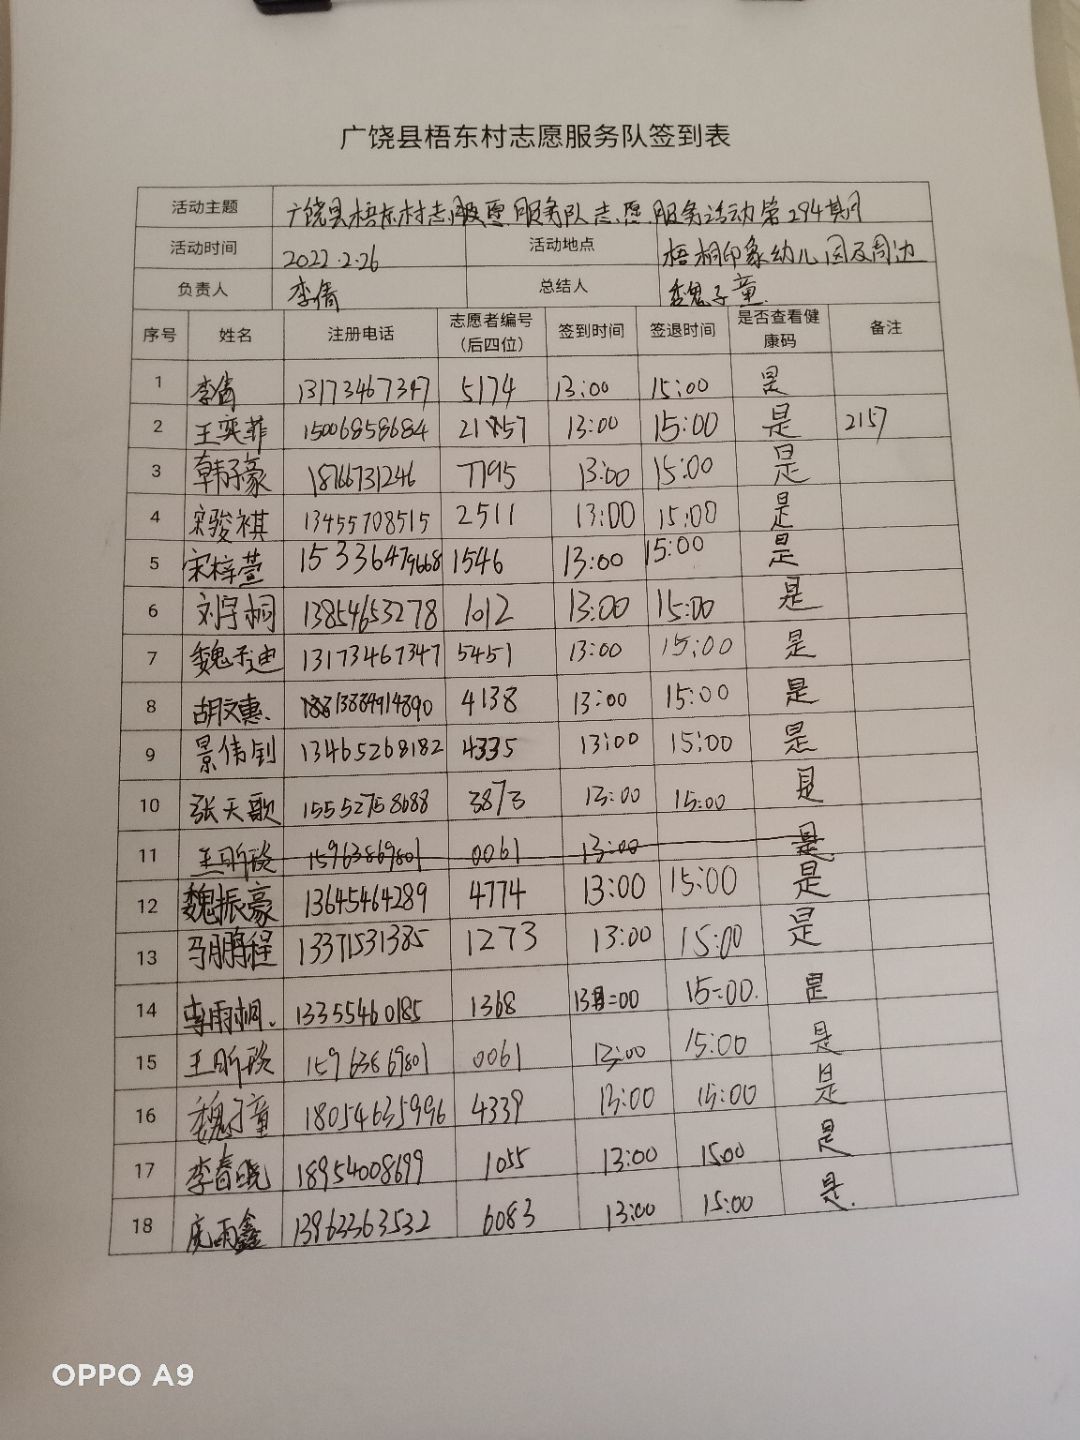 广饶县梧东村志愿服务队签到表
活动主题 广饶县梧东村志愿服务队志愿服务活动第294期
活动时间 2022.2.26 活动地点 梧桐印象幼儿园及周边
负责人 李倩 总结人 魏子童
序号 姓名 注册电话 志愿者编号(后四位) 签到时间 签退时间 是否查看健康码 备注
1 李倩 13173467347 5174 13:00 15:00 是
2 王奕菲 15006858684 2157 13:00 15:00 是 2157
3 韩子豪 18766731246 7795 13:00 15:00 是
4 宋骏祺 13455708515 2511 13:00 15:00 是
5 宋梓萱 15336479668 1546 13:00 15:00 是
6 刘宇桐 13854653278 1012 13:00 15:00 是
7 魏子迪 13173467347 5451 13:00 15:00 是
8 胡文惠 4138 13:00 15:00 是
9 景伟钊 13465268182 4335 13:00 15:00 是
10 张天歌 15552758688 3873 13:00 15:00 是
11 王昕琰 15963869801 0061 13:00 是
12 魏振豪 13645464289 4774 13:00 15:00 是
13 马鹏程 13371531385 1273 13:00 15:00 是
14 李雨桐 13355460185 1368 13:00 15:00 是
15 王昕琰 15963869801 0061 13:00 15:00 是
16 魏子童 18054635996 4339 13:00 15:00 是
17 李春晓 18954008699 1055 13:00 1500 是
18 庞雨鑫 13963363532 6083 13:00 15:00 是.
OPPO A9